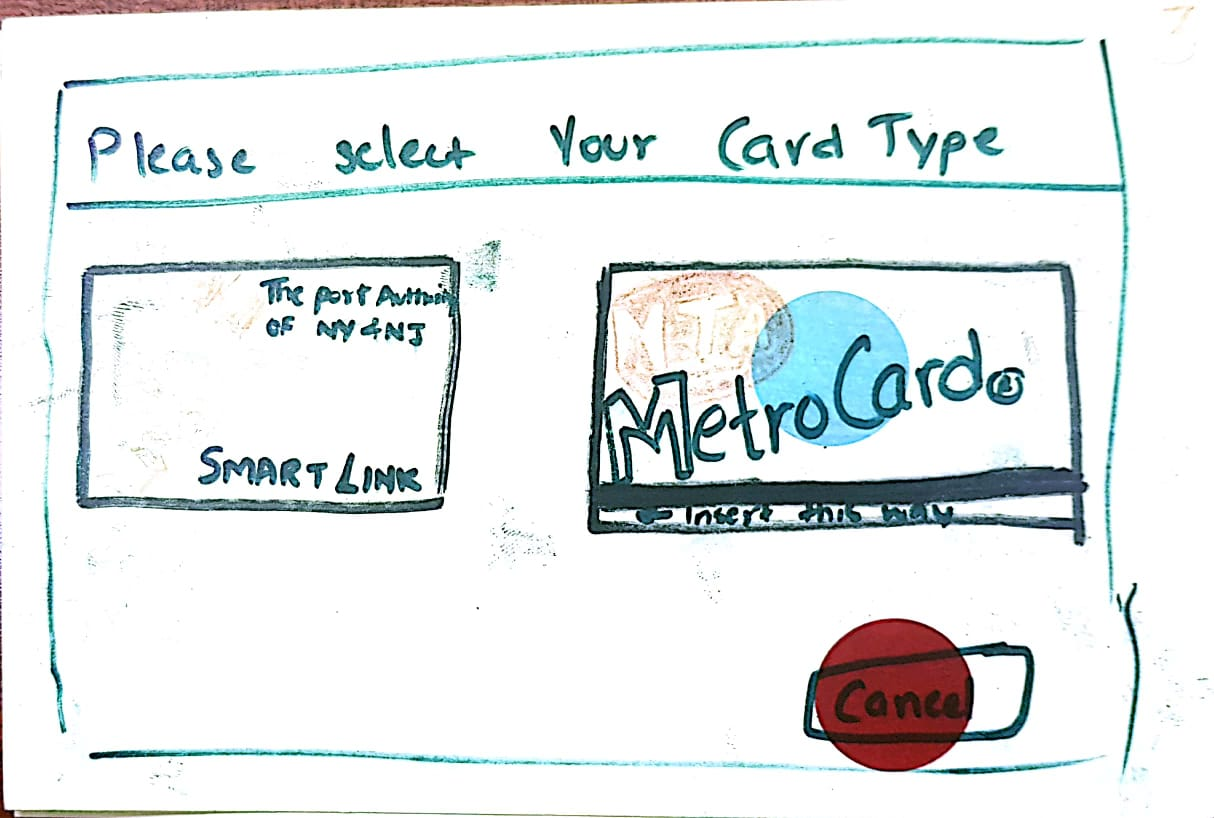 Please select Your Card Type
The port Authority
OF NY & NJ
SMART LINK
METRO
MetroCard®
← Insert this way
Cancel
3